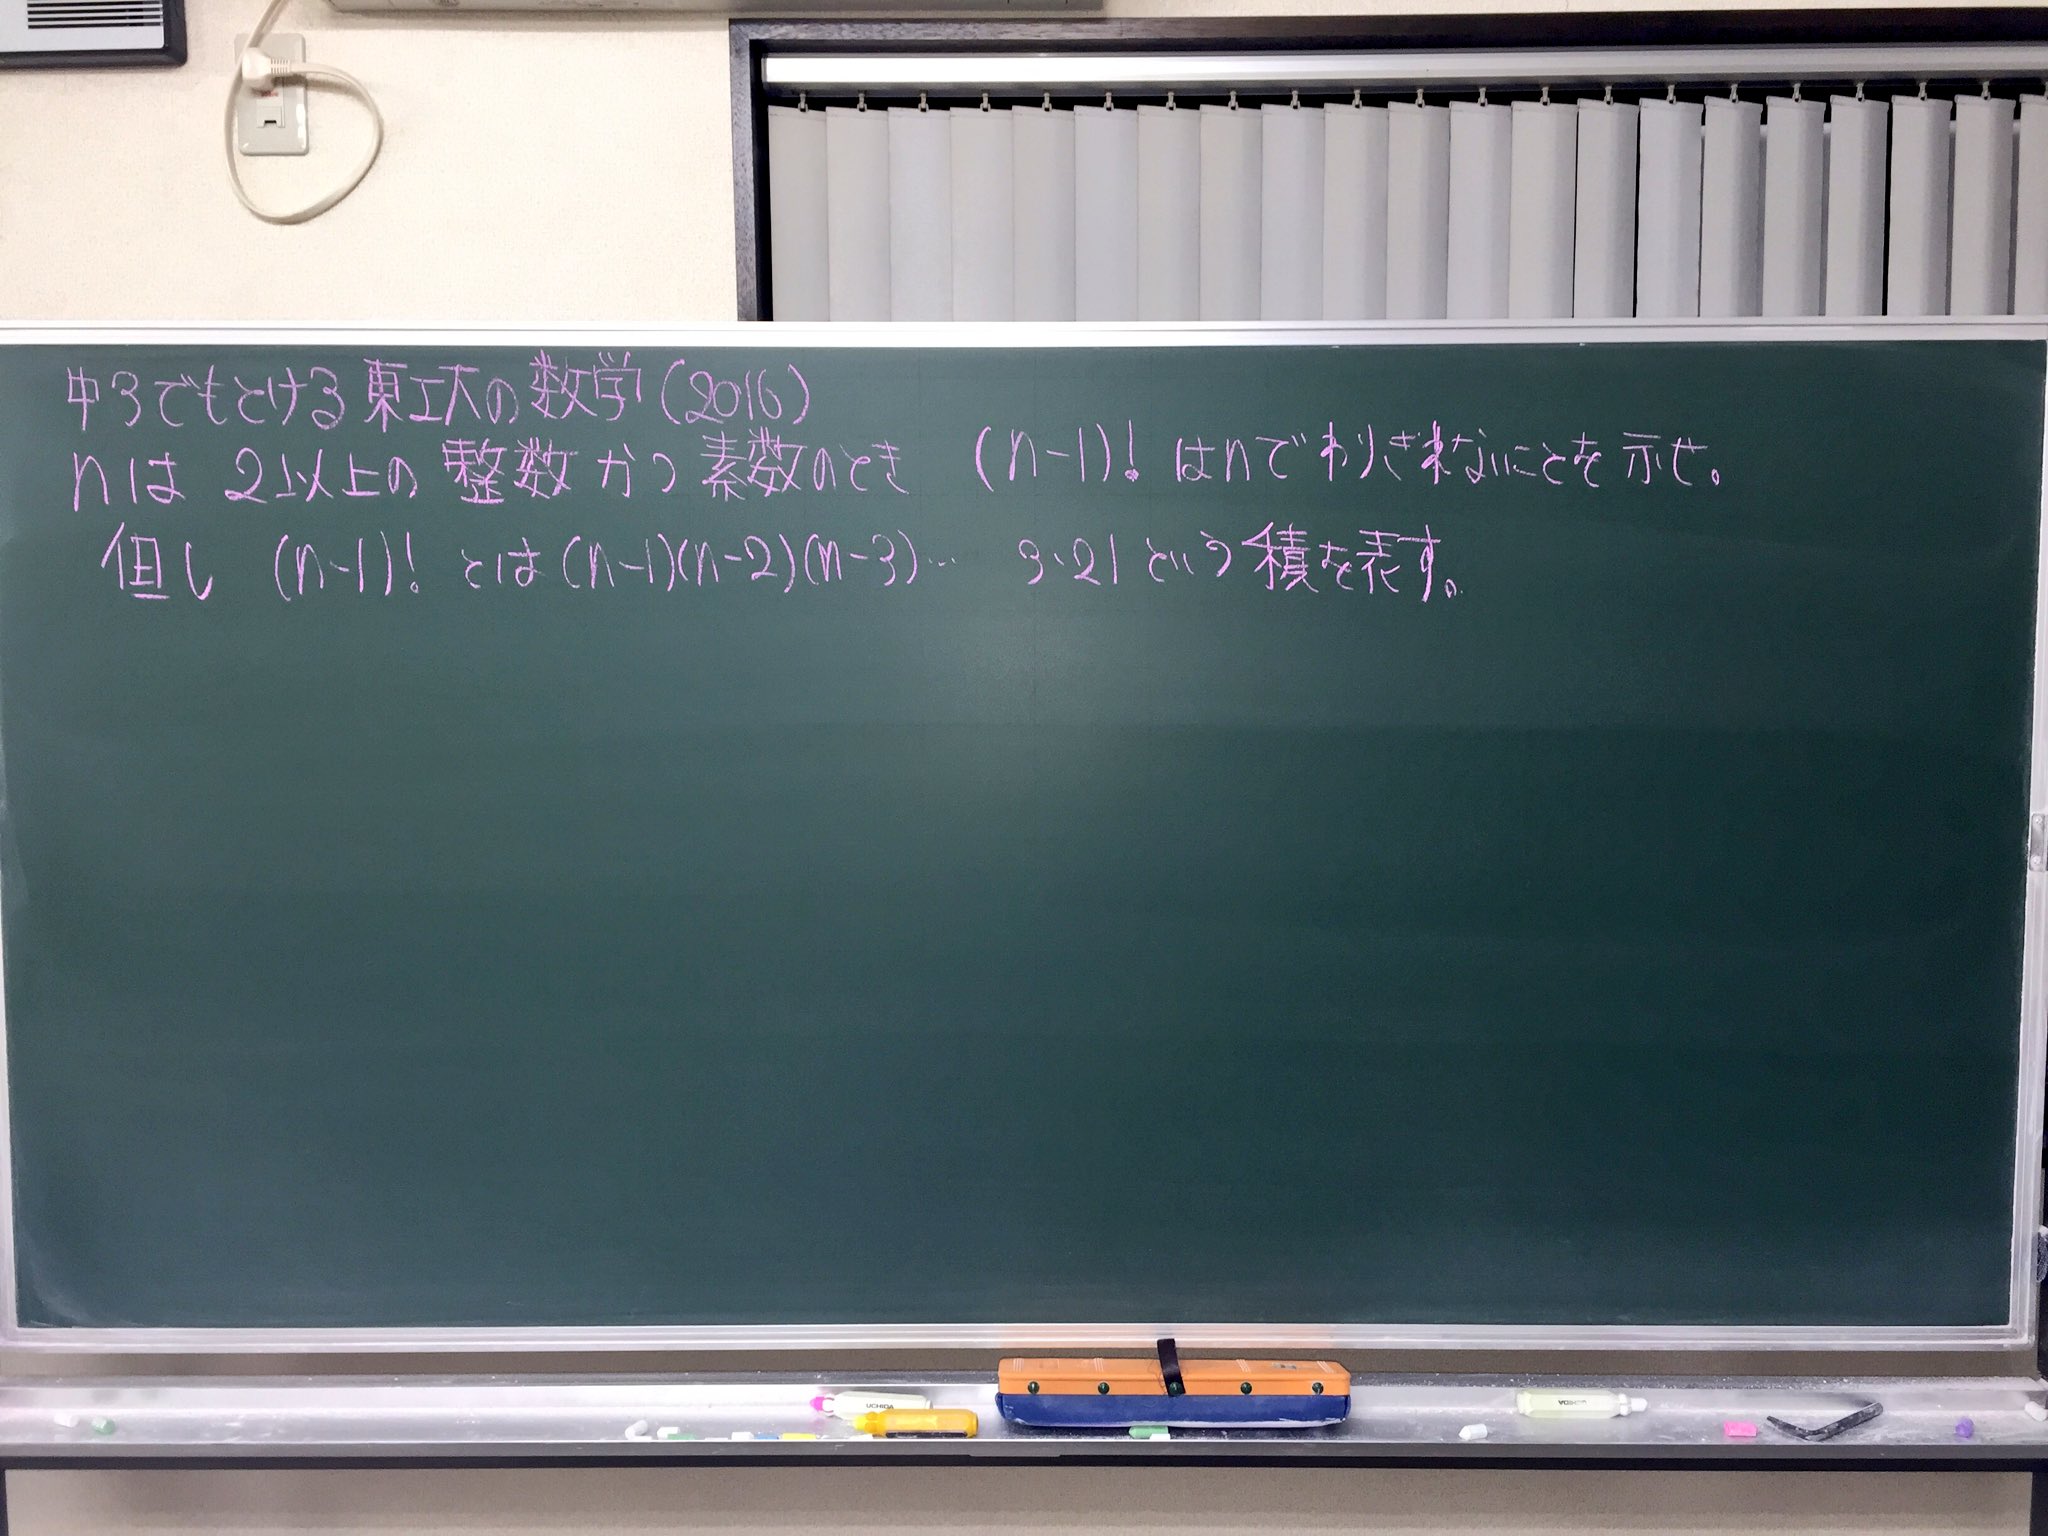 中3でもとける東工大の数学(2016)
nは2以上の整数かつ素数のとき (n-1)! はnでわりきれないことを示せ。
但し (n-1)! とは(n-1)(n-2)(n-3)… 3・2 1 という積を表す。
UCHIDA
UCHIDA